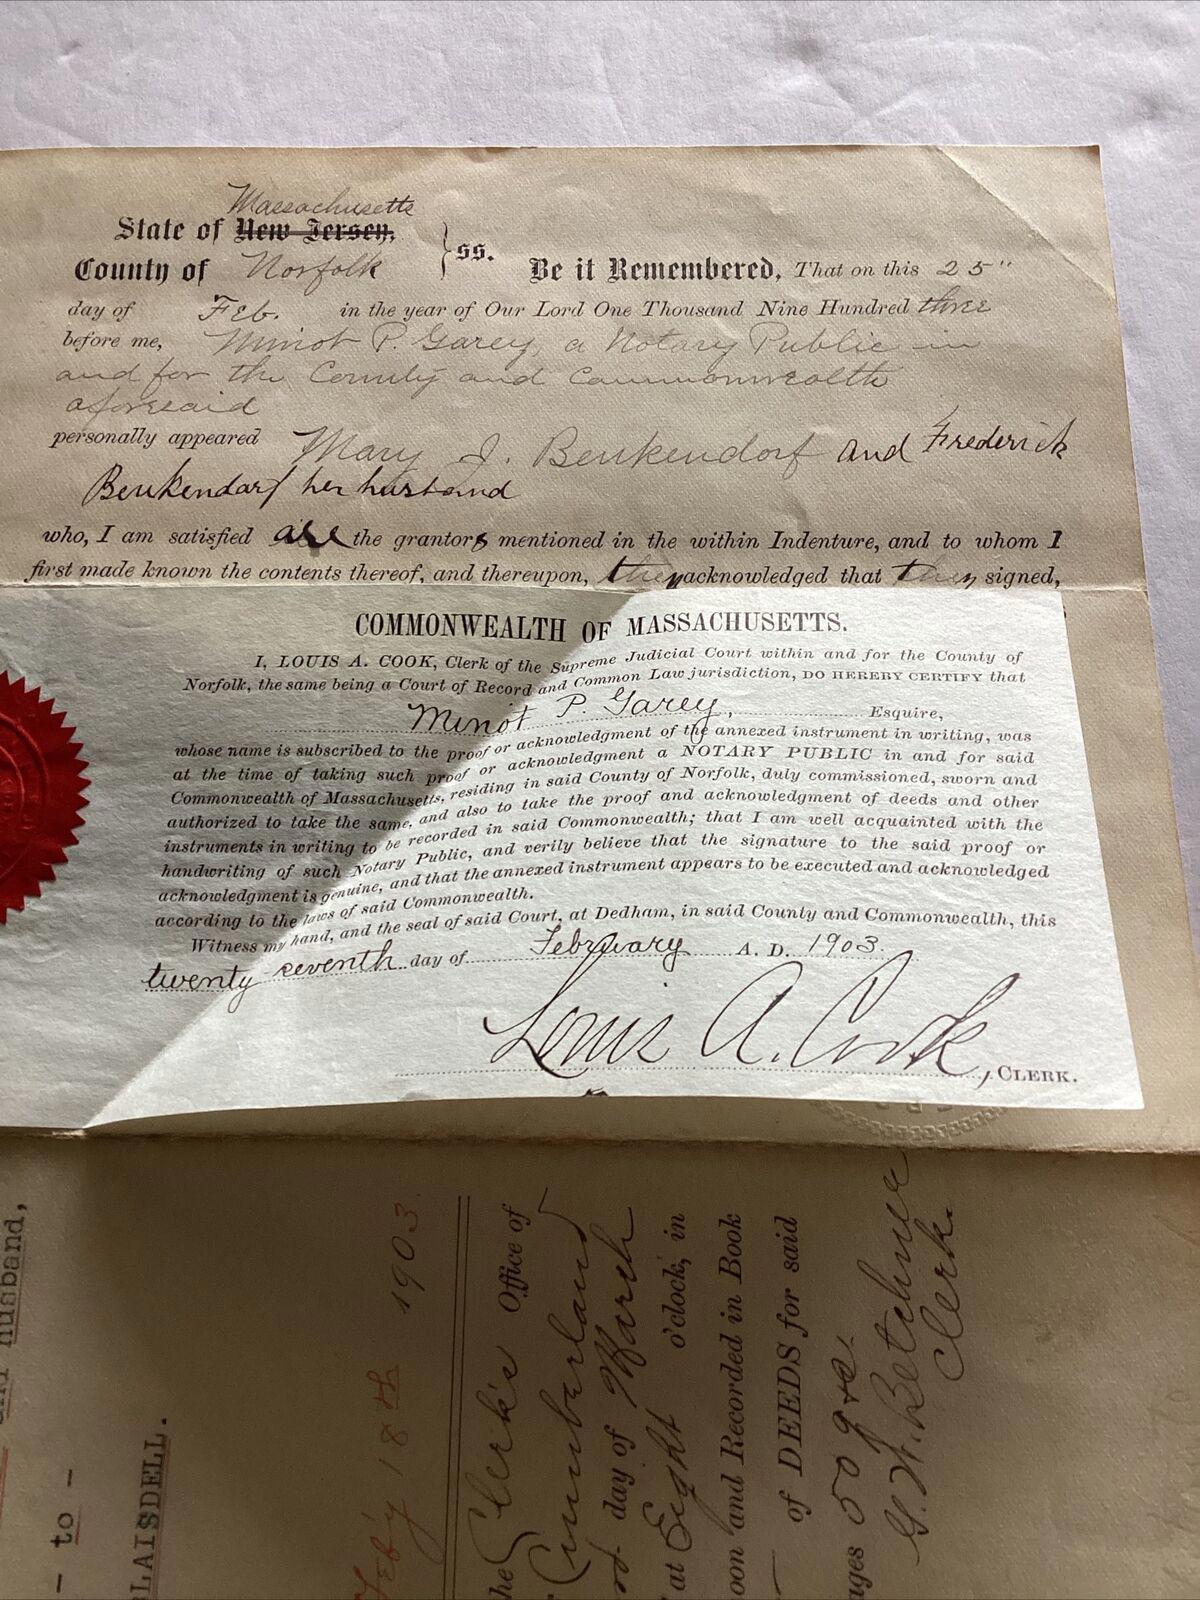 Massachusetts
State of New Jersey,
County of Norfolk } ss. Be it Remembered, That on this 25"
day of Feb. in the year of Our Lord One Thousand Nine Hundred three
before me, Minot P. Garey, a Notary Public in
and for the County and Commonwealth
aforesaid
personally appeared Mary J. Benkendorf and Frederick
Benkendorf her husband
who, I am satisfied are the grantors mentioned in the within Indenture, and to whom I
first made known the contents thereof, and thereupon, they acknowledged that they signed,
COMMONWEALTH OF MASSACHUSETTS.
I, LOUIS A. COOK, Clerk of the Supreme Judicial Court within and for the County of
Norfolk, the same being a Court of Record and Common Law jurisdiction, DO HEREBY CERTIFY that
Minot P. Garey, Esquire,
whose name is subscribed to the proof or acknowledgment of the annexed instrument in writing, was
at the time of taking such proof or acknowledgment a NOTARY PUBLIC in and for said
Commonwealth of Massachusetts, residing in said County of Norfolk, duly commissioned, sworn and
authorized to take the same, and also to take the proof and acknowledgment of deeds and other
instruments in writing to be recorded in said Commonwealth; that I am well acquainted with the
handwriting of such Notary Public, and verily believe that the signature to the said proof or
acknowledgment is genuine, and that the annexed instrument appears to be executed and acknowledged
according to the laws of said Commonwealth.
Witness my hand, and the seal of said Court, at Dedham, in said County and Commonwealth, this
twenty seventh day of February A. D. 1903.
Louis A. Cook, CLERK.
husband,
- to -
LAISDELL.
Feb'y 18th 1903
the Clerk's Office of
Cumberland
day of March
at Eight o'clock, in
oon and Recorded in Book
of DEEDS for said
ages 509 &c.
Clerk.